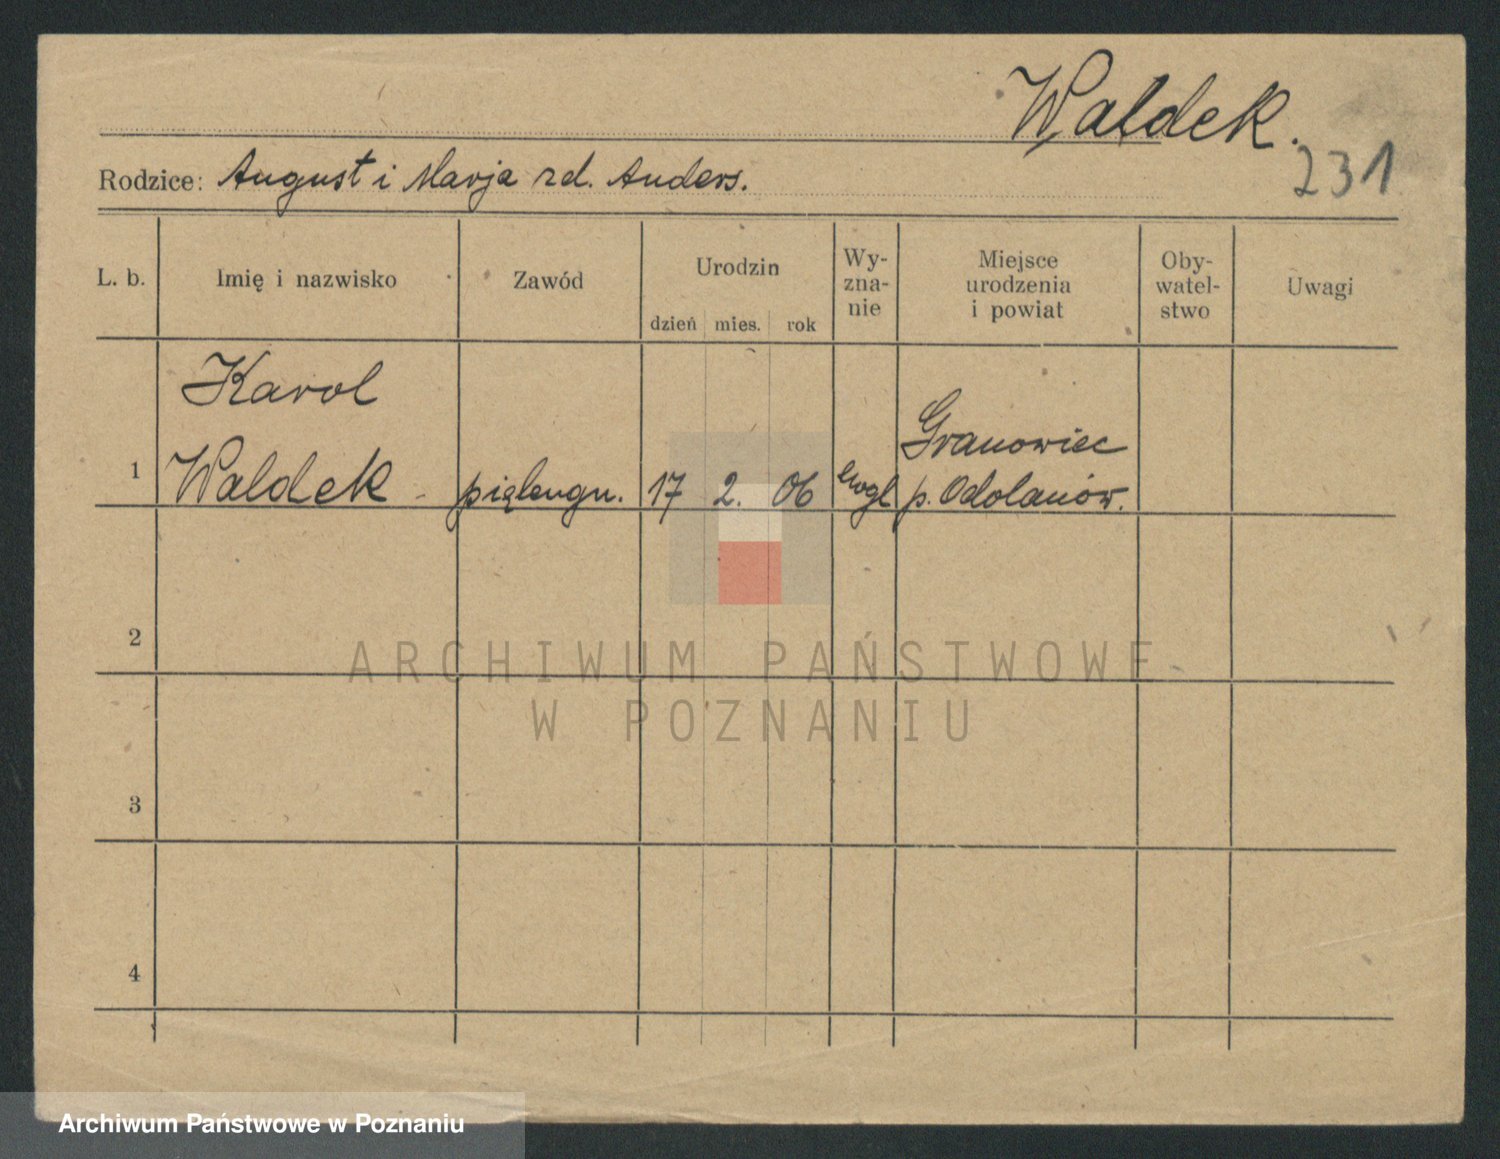 Waldek.
231
Rodzice: August i Marja zd. Anders.
L. b.
Imię i nazwisko
Zawód
Urodzin
dzień mies. rok
Wy-
zna-
nie
Miejsce
urodzenia
i powiat
Oby-
watel-
stwo
Uwagi
Karol
Granowiec
1 Waldek pielengn. 17 2. 06 ewgl p. Odolanów.
2
ARCHIWUM PAŃSTWOWE
W POZNANIU
3
4
Archiwum Państwowe w Poznaniu